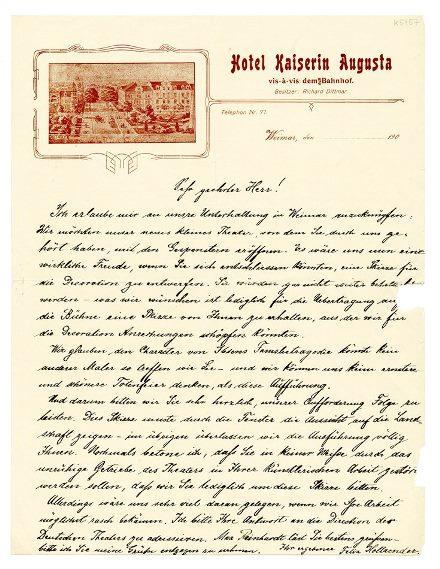 K5157
Hotel Kaiserin Augusta
vis-à-vis dem Bahnhof.
Besitzer: Richard Dittmar.
Telephon Nr. 91.
Weimar, den 190
Sehr geehrter Herr!
Ich erlaube mir an unsre Unterhaltung in Weimar anzuknüpfen:
Wir möchten unser neues kleines Theater, von dem Sie durch uns ge-
hört haben, mit den Gespenstern eröffnen. Es wäre uns nun eine
wirkliche Freude, wenn Sie sich entschliessen könnten, eine Skizze für
die Decoration zu entwerfen. Sie würden gar nicht weiter
werden – was wir wünschen ist lediglich für die Uebertragung auf
die Bühne eine Skizze von Ihnen zu erhalten, aus der wir für
die Decoration Anreckungen schöpfen könnten.
Wir glauben, den Charakter von Ibsens Familientragödie könnte kein
anderer Maler so treffen wie Sie – und wir können uns keine ernstere
und schönere Totenfeier denken, als diese Aufführung.
Und darum bitten wir Sie sehr herzlich, unserer Aufforderung Folge zu
leisten. Diese Skizze müsste durch die Fenster die Aussicht auf die Land-
schaft zeigen – im übrigen überlassen wir die Ausführung völlig
Ihnen. Nochmals betone ich, daß Sie in keiner Weise durch das
unruhige Getriebe des Theaters in Ihrer künstlerischen Arbeit gestört
werden sollen, daß wir Sie lediglich um diese Skizze bitten.
Allerdings wäre uns sehr viel daran gelegen, wenn wir Ihre Arbeit
möglichst rasch bekämen. Ich bitte Ihre Antwort an die Direction des
Deutschen Theaters zu adressieren. Max Reinhardt läßt Sie bestens grüssen –
bitte ich Sie meine Grüße entgegen zu nehmen. Ihr ergebener Felix Hollaender.